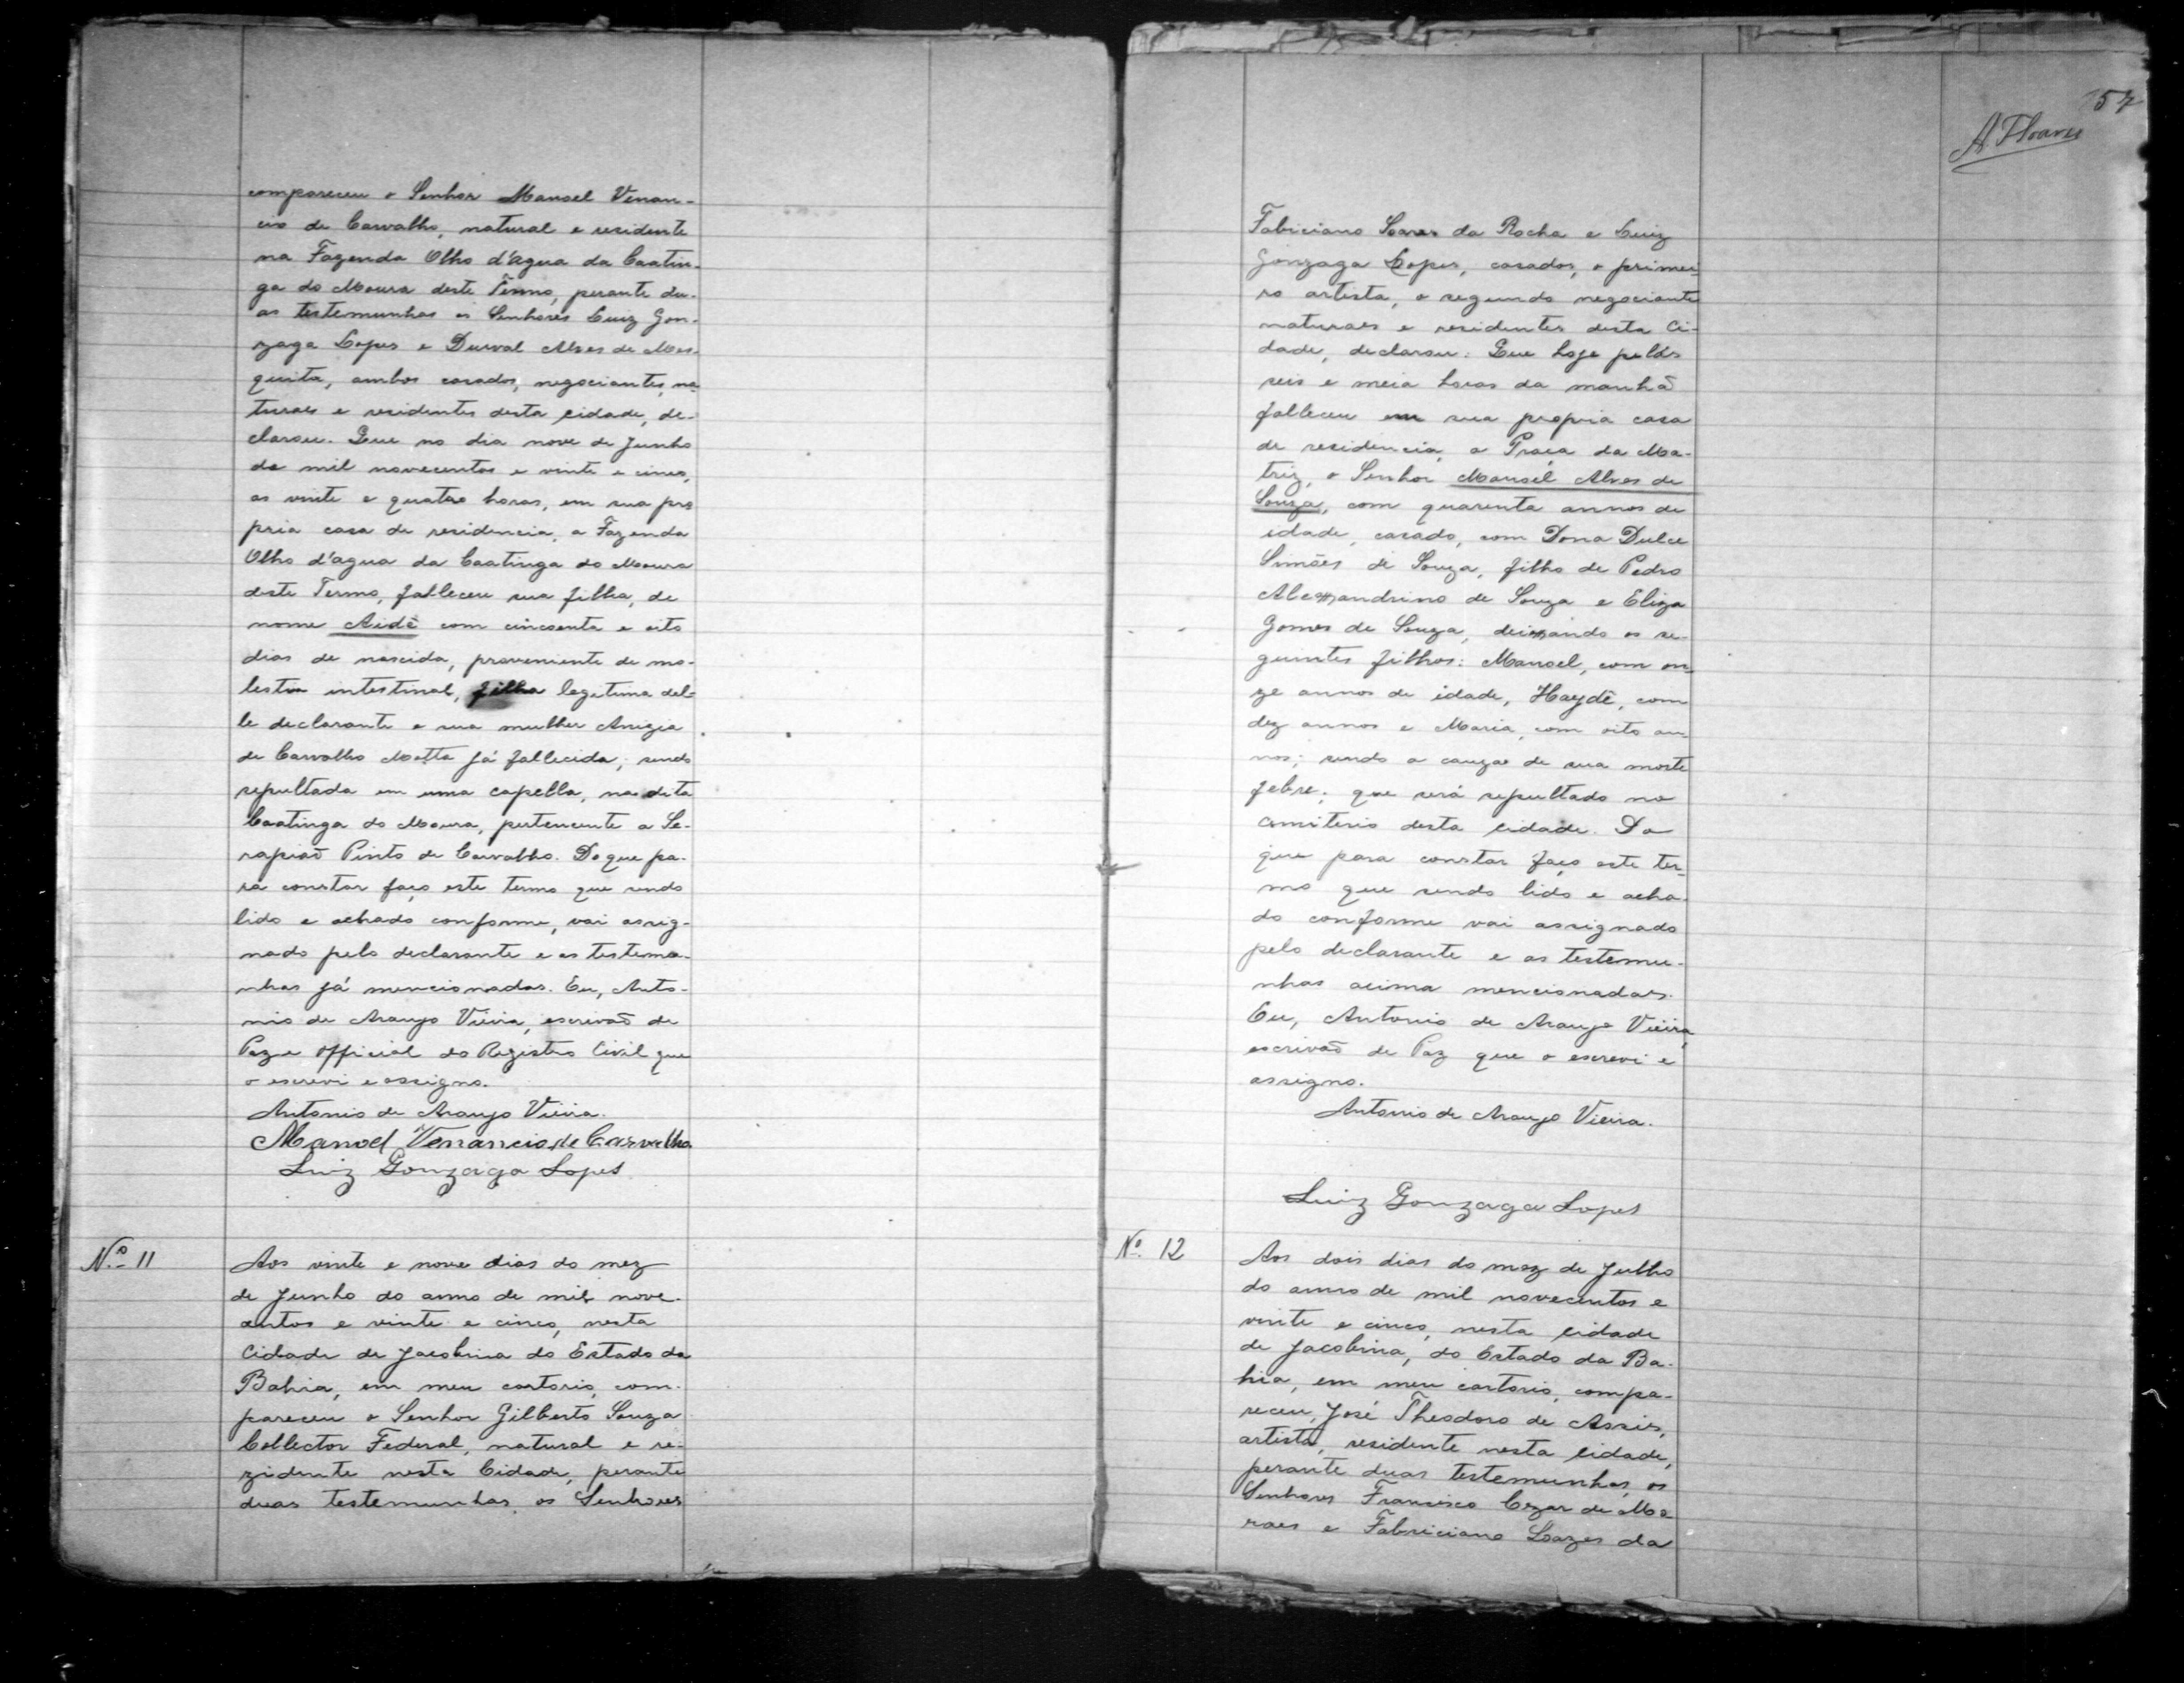 compareceu o Senhor Manoel Venan-
cio de Carvalho, natural e residente
na Fazenda Olho d'agua da Caatin-
ga do Moura deste Termo, perante du-
as testemunhas os Senhores Luiz Gon-
zaga Lopes e Durval Alves de Mes-
quita, ambos casados, negociantes, na-
turaes e residentes desta cidade, de-
clarou. Que no dia nove de Junho
de mil novecentos e vinte e cinco,
as vinte e quatro horas, em sua pro
pria casa de residencia, a Fazenda
Olho d'agua da Caatinga do Moura
deste Termo, falleceu sua filha, de
nome Aidê com cincoenta e oito
dias de nascida, proveniente de mo-
lestia intestinal, filha legitima del-
le declarante e sua mulher Anizia
de Carvalho Motta já fallecida; sendo
sepultada em uma capella, na dita
Caatinga do Moura, pertencente a Se-
rapião Pinto de Carvalho. Do que pa-
ra constar faço este termo que sendo
lido e achado conforme, vai assig-
nado pelo declarante e as testemu-
nhas já mencionadas. Eu, Anto-
nio de Araujo Vieira, escrivão de
Paz e official do Registro Civil que
o escrevi e assigno.
Antonio de Araujo Vieira.
Manoel Venancio de Carvalho
Luiz Gonzaga Lopes
Nº 11
Aos vinte e nove dias do mez
de Junho do anno de mil nove-
centos e vinte e cinco, nesta
Cidade de Jacobina do Estado da
Bahia, em meu cartorio, com-
pareceu o Senhor Gilberto Souza
Collector Federal, natural e re-
zidente nesta Cidade, perante
duas testemunhas os Senhores
157
Fabriciano Soares da Rocha e Luiz
Gonzaga Lopes, casados, o primei-
ro artista, o segundo negociante
naturaes e residentes desta Ci-
dade, declarou: Que hoje pelas
seis e meia horas da manhã
falleceu em sua propria casa
de residencia, a Praça da Ma-
triz, o Senhor Manoel Alves de
Souza, com quarenta annos de
idade, casado, com Dona Dulce
Simões de Souza, filho de Pedro
Alexandrino de Souza e Eliza
Gomes de Souza, deixando os se-
guintes filhos: Manoel, com on-
ze annos de idade, Haydê, com
dez annos e Maria, com oito an-
nos; sendo a cauza de sua morte
febre; que será sepultado no
cemiterio desta cidade. Do
que para constar faço este ter-
mo que sendo lido e acha-
do conforme vai assignado
pelo declarante e as testemu-
nhas acima mencionadas.
Eu, Antonio de Araujo Vieira,
escrivão de Paz que o escrevi e
assigno.
Antonio de Araujo Vieira.
Luiz Gonzaga Lopes
Nº 12
Aos dois dias do mez de Julho
do anno de mil novecentos e
vinte e cinco, nesta cidade
de Jacobina, do Estado da Ba-
hia, em meu cartorio, compa-
receu, José Theodoro de Assis,
artista, residente nesta cidade,
perante duas testemunhas os
Senhores Francisco Cezar de Mo
raes e Fabriciano Soares da